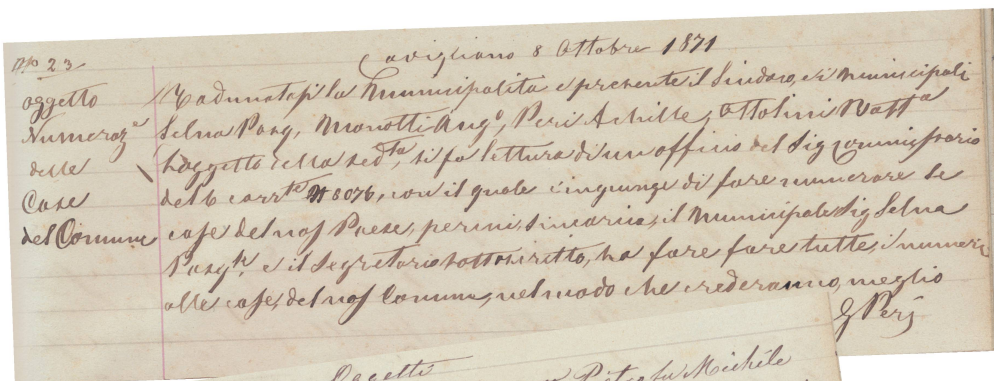 No 23
Cavigliano 8 Ottobre 1871
oggetto
Numeraze
delle
Case
del Comune
Radunatasi la Municipalità e presente il Sindaco, e i Municipali
Selna Pasq, Monotti Ango, Peri Achille, Ottolini Batta
L'oggetto della sedta, si fa lettura di un officio del Sig Commissario
del 6 corrte N 8076, con il quale c'ingiunge di fare numerare le
case del nos Paese, per cui, s'incarica, il Municipale Sig Selna
Pasqle, e il Segretario sottoscritto, ha fare fare tutte, i numeri
alle case, del nos Comune, nel modo che crederanno, meglio
G Peri
Oggetti
Pietro fu Michele